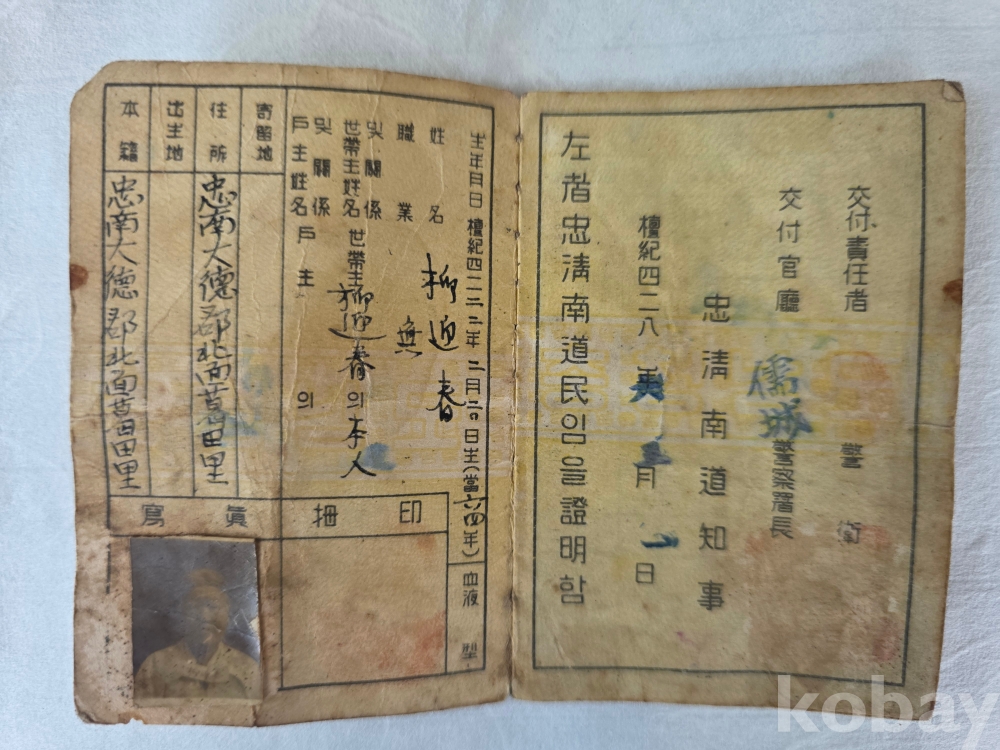 本籍 忠南大德郡北面葛田里
出生地
住所 忠南大德郡北面葛田里
寄留地
戶主姓名 戶主 의
및關係
世帶主姓名 世帶主 柳迎春 의 本人
및關係
職業 無
姓名 柳迎春
生年月日 檀紀四二二二年二月二0日生(當六四年)
血液型
寫眞
拇印
左者忠淸南道民임을證明함
檀紀四二八 年 月一日
忠淸南道知事
交付官廳 儒城警察署長
交付責任者 警衛
kobay